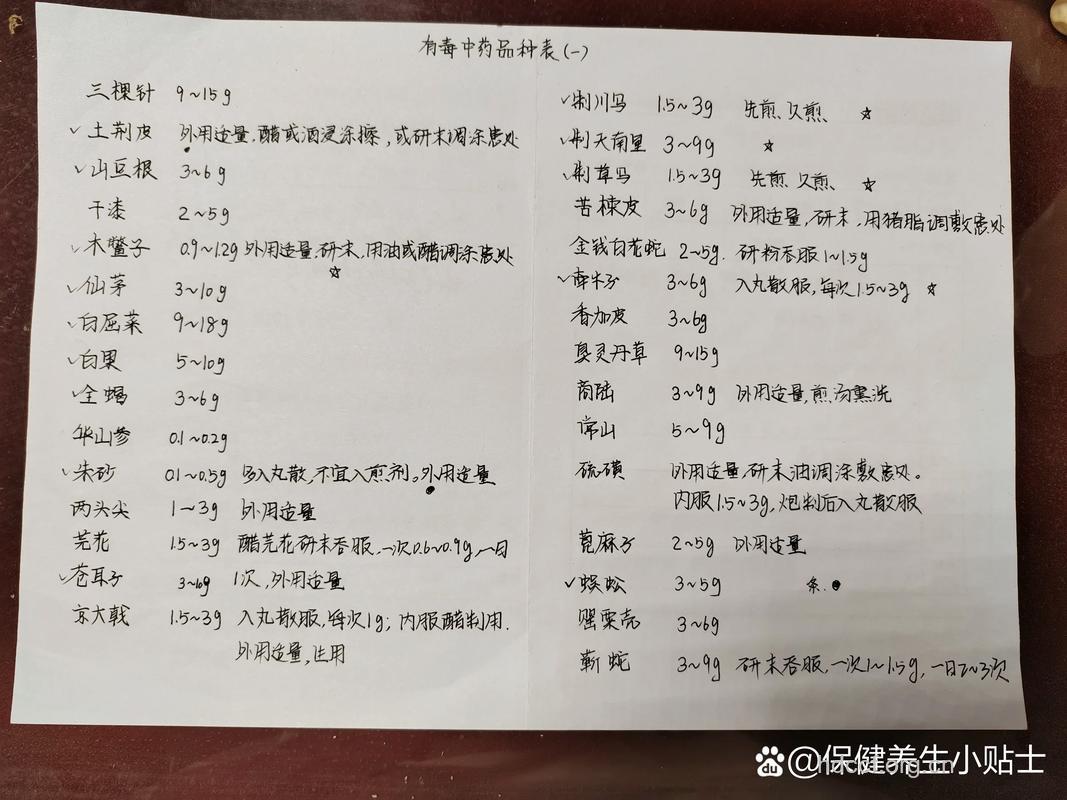 有毒中药品种表(一)
三棵针 9~15g
✓土荆皮 外用适量,醋或酒浸涂擦,或研末调涂患处
✓山豆根 3~6g
干漆 2~5g
✓木鳖子 0.9~1.2g 外用适量,研末,用油或醋调涂患处
☆
✓仙茅 3~10g
✓白屈菜 9~18g
✓白果 5~10g
✓全蝎 3~6g
华山参 0.1~0.2g
✓朱砂 0.1~0.5g 多入丸散,不宜入煎剂。外用适量
两头尖 1~3g 外用适量
芫花 1.5~3g 醋芫花研末吞服,一次0.6~0.9g,一日
✓苍耳子 3~10g 1次,外用适量
京大戟 1.5~3g 入丸散服,每次1g;内服醋制用.
外用适量,生用
✓制川乌 1.5~3g 先煎、久煎 ☆
✓制天南星 3~9g ☆
✓制草乌 1.5~3g 先煎、久煎 ☆
苦楝皮 3~6g 外用适量,研末,用猪脂调敷患处
金钱白花蛇 2~5g. 研粉吞服1~1.5g
✓牵牛子 3~6g 入丸散服,每次1.5~3g ☆
香加皮 3~6g
臭灵丹草 9~15g
商陆 3~9g 外用适量,煎汤熏洗
常山 5~9g
硫磺 外用适量,研末油调涂敷患处。
内服1.5~3g,炮制后入丸散服
蓖麻子 2~5g 外用适量
✓蜈蚣 3~5g 条.
罂粟壳 3~6g
蕲蛇 3~9g 研末吞服,一次1~1.5g,一日2~3次
@保健养生小贴士